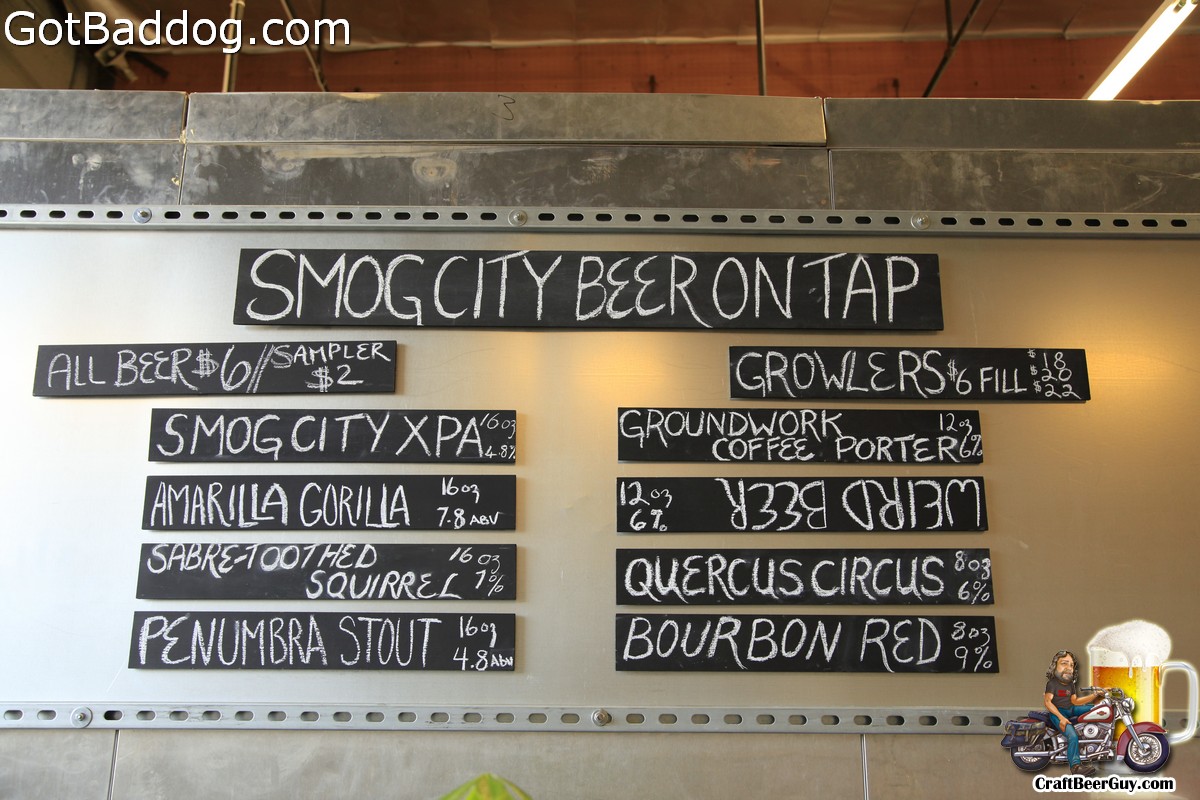 GotBaddog.com
SMOG CITY BEER ON TAP
ALL BEER $6 // SAMPLER
$2
GROWLERS $6 FILL $18
$20
$22
SMOG CITY XPA 16oz
4.8%
AMARILLA GORILLA 16oz
7.8 ABV
SABRE-TOOTHED 16oz
SQUIRREL 7%
PENUMBRA STOUT 16oz
4.8 ABV
GROUNDWORK 12oz
COFFEE PORTER 6%
12oz WEIRD BEER
6%
QUERCUS CIRCUS 8oz
6%
BOURBON RED 8oz
9%
CraftBeerGuy.com